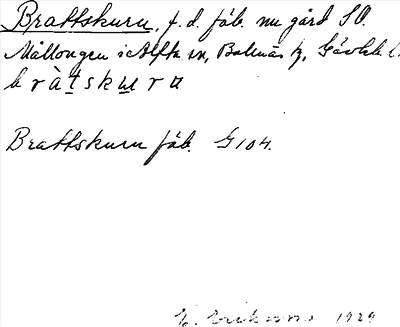 Brattskuru, f. d. fäb. nu gård SO.
Mållången i Alfta sn, Bollnäs tg, Gävleb. l.
bràtskuru
Brattskuru fäb. G104.
E. Eriksson 1929